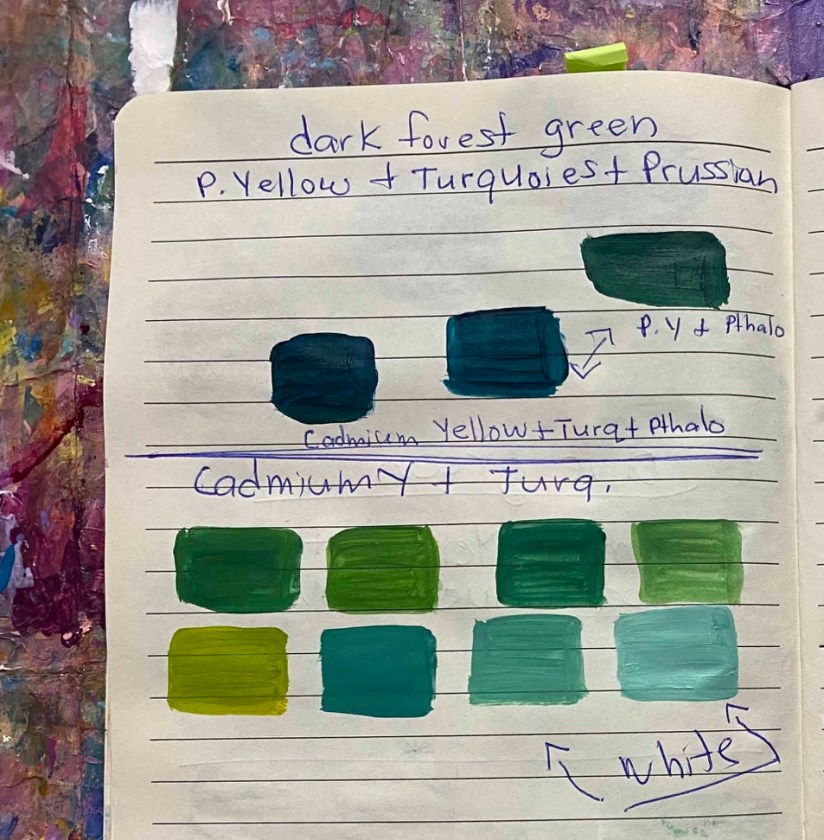 dark forest green
P. Yellow + Turquoies + Prussian
P. Y + Pthalo
Cadmium Yellow + Turq + Pthalo
Cadmium Y + Turq.
white